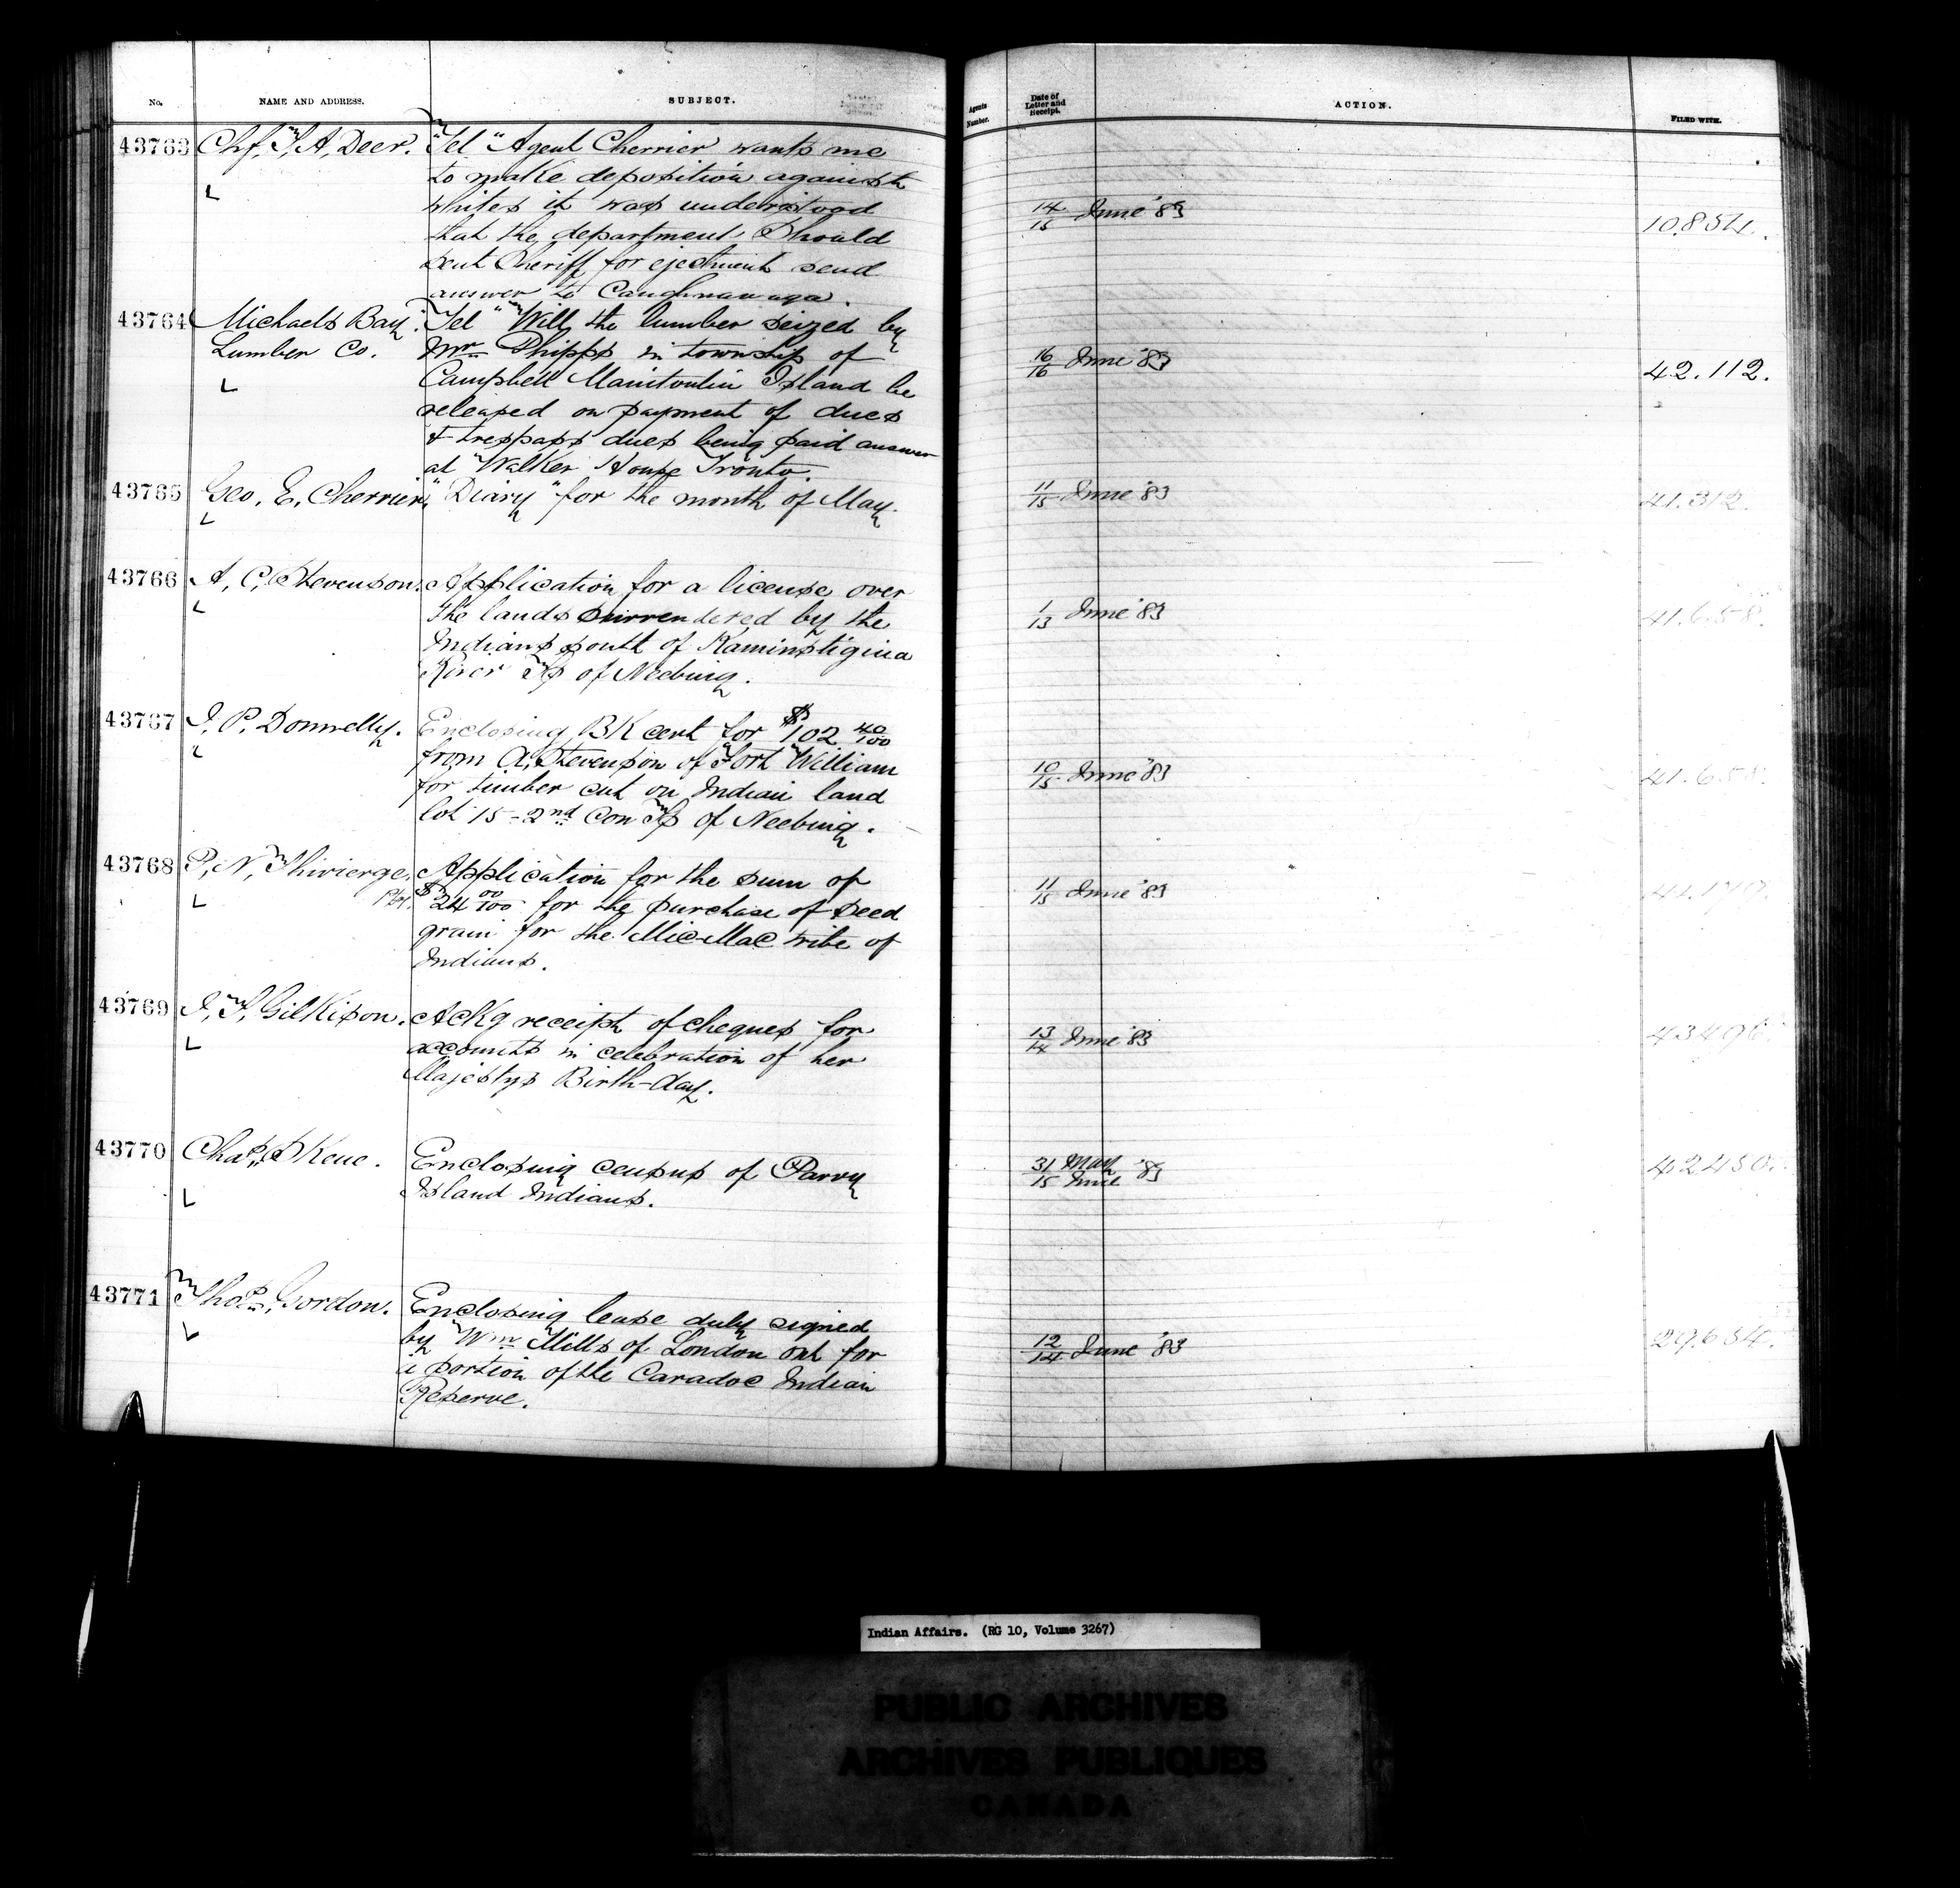 No. NAME AND ADDRESS. SUBJECT. Agents Number. Date of Letter and Receipt. ACTION. FILED WITH.
43763 Chf. T, A, Deer. "Tel" Agent Cherrier wants me
to make deposition against
whites it was understood
that the department Should 14/15 June '83 10.854.
sent Sheriff for ejectment send
answer to Caughnawaga.
43764 Michaels Bay "Tel" Will the lumber seized by
Lumber Co. Mr Phipps in township of 16/16 June '83 42.112.
Campbell Manitoulin Island be
released on payment of dues
& trespass dues being paid answer
at Walker House Tronto.
43765 Geo, E, Cherrier, "Diary" for the month of May. 11/15 June '83 41.312.
43766 A, C, Stevenson. Application for a license over
the lands surrendered by the 1/13 June '83 41.658.
Indians south of Kaministigina
River Tp of Neebing.
43767 J, P, Donnelly. Enclosing BK cert for $102 40/100
from A, Stevenson of Fort William 10/15 June '83 41.658.
for timber cut on Indian land
lot 15 - 2nd Con Tp of Neebing.
43768 P, N, Thivierge, Application for the sum of 11/15 June '83
Ptr. $24 00/100 for the purchase of seed
grain for the Mic-Mac tribe of
Indians.
43769 J, T, Gilkison. Ackg receipt of cheques for 13/14 June '83 43496.
accounts in celebration of her
Majestys Birth-day.
43770 Chas, Skene. Enclosing census of Parry 31 May / 15 June '83 42450.
Island Indians.
43771 Thos, Gordon. Enclosing lease duly signed
by Wm Mills of London ont for 12/14 June '83 29.634.
a portion of the Caradoc Indian
Reserve.
Indian Affairs. (RG 10, Volume 3267)
PUBLIC ARCHIVES
ARCHIVES PUBLIQUES
CANADA